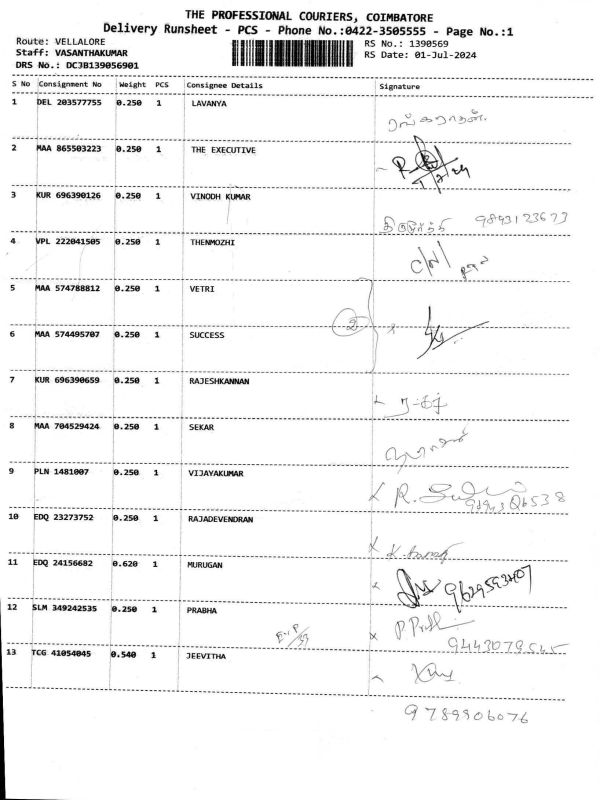 THE PROFESSIONAL COURIERS, COIMBATORE
Delivery Runsheet - PCS - Phone No.:0422-3505555 - Page No.:1
Route: VELLALORE
RS No.: 1390569
Staff: VASANTHAKUMAR
RS Date: 01-Jul-2024
DRS No.: DCJB139056901
S No Consignment No Weight PCS Consignee Details Signature
1 DEL 203577755 0.250 1 LAVANYA
2 MAA 865503223 0.250 1 THE EXECUTIVE
3 KUR 696390126 0.250 1 VINODH KUMAR
9893123673
4 VPL 222041505 0.250 1 THENMOZHI
5 MAA 574788812 0.250 1 VETRI
2
6 MAA 574495707 0.250 1 SUCCESS
7 KUR 696390659 0.250 1 RAJESHKANNAN
8 MAA 704529424 0.250 1 SEKAR
9 PLN 1481007 0.250 1 VIJAYAKUMAR
10 EDQ 23273752 0.250 1 RAJADEVENDRAN
11 EDQ 24156682 0.620 1 MURUGAN
9629593407
12 SLM 349242535 0.250 1 PRABHA
9443079545
13 TCG 41054045 0.540 1 JEEVITHA
9789906076